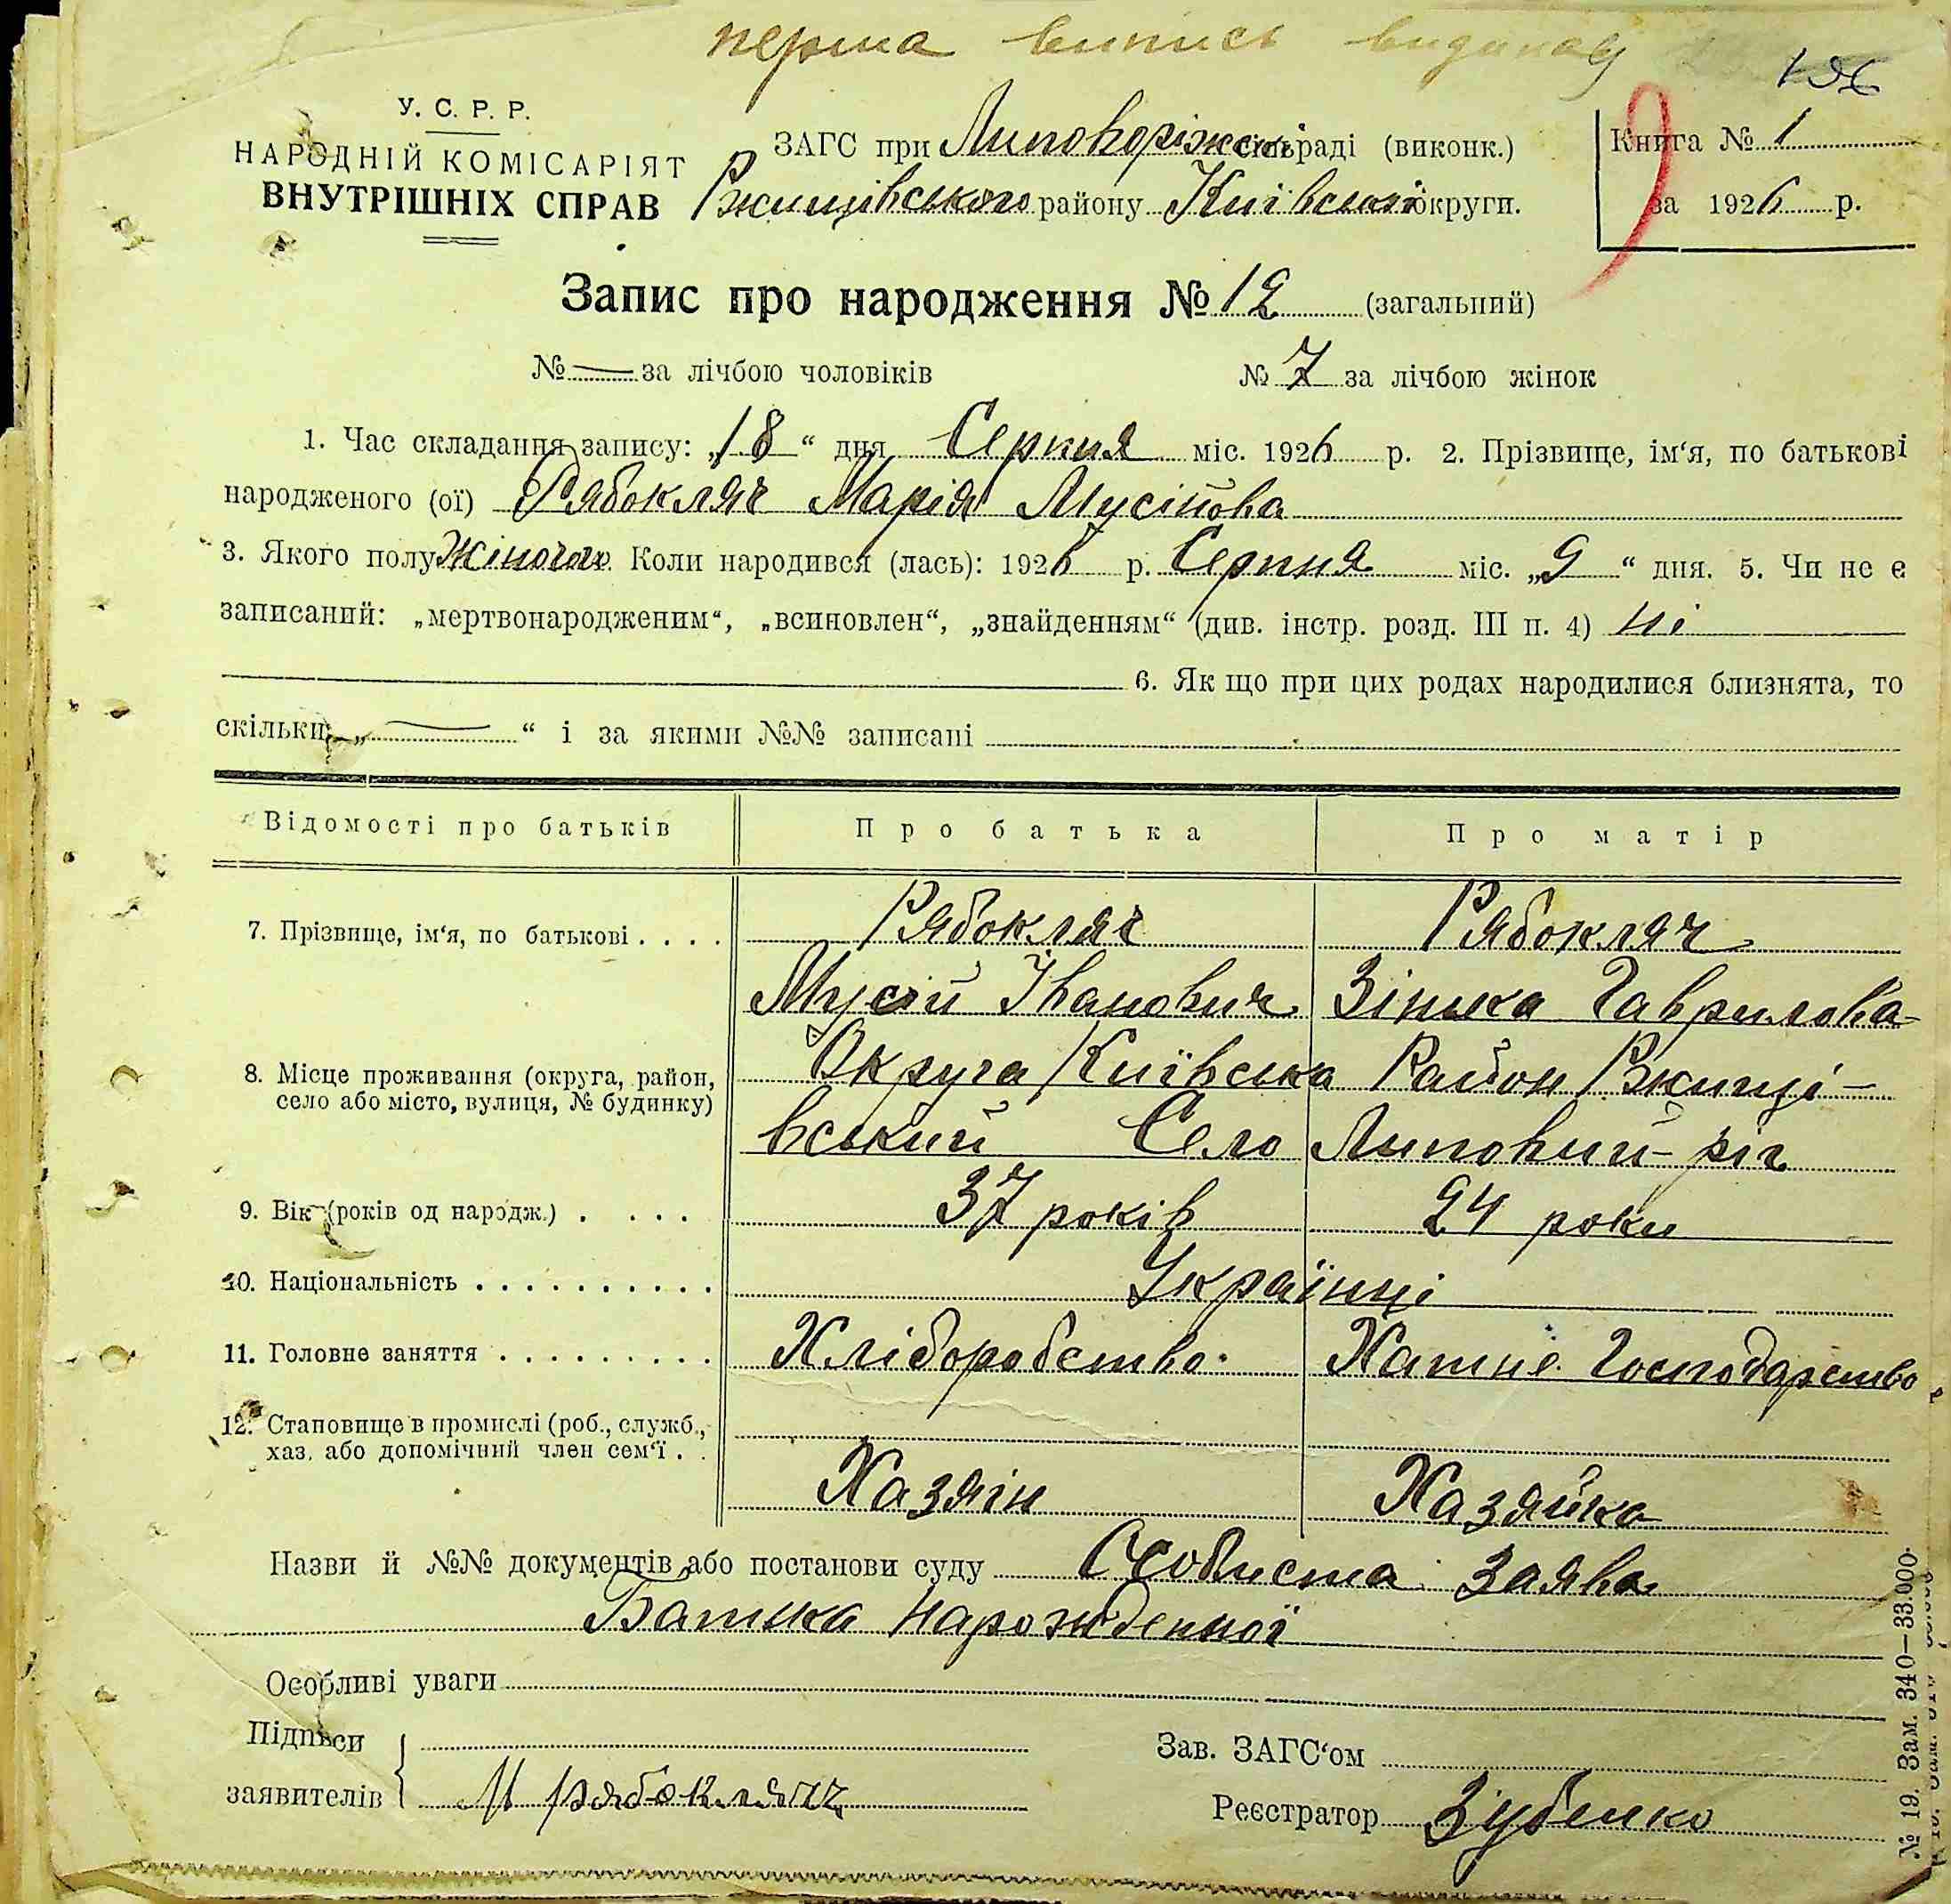 перша випись видана
196
У. С. Р. Р.
НАРОДНІЙ КОМІСАРІЯТ
ВНУТРІШНІХ СПРАВ
ЗАГС при Липоворіжськ сільраді (виконк.)
Ржищівського району Київської округи.
Книга № 1
за 1926 р.
Запис про народження № 12 (загальний)
№ — за лічбою чоловіків № 7 за лічбою жінок
1. Час складання запису: „18“ дня Серпня міс. 1926 р. 2. Прізвище, ім‘я, по батькові
народженого (ої) Рябокляч Марія Мусійова
3. Якого полу Жіночого Коли народився (лась): 1926 р. Серпня міс. „9“ дня. 5. Чи не є
записаний: „мертвонародженим“, „всиновлен“, „знайденням“ (див. інстр. розд. III п. 4) ні
6. Як що при цих родах народилися близнята, то
скільки „—“ і за якими №№ записані
Відомості про батьків Про батька Про матір
7. Прізвище, ім‘я, по батькові . . . . Рябокляч Рябокляч
Мусій Іванович Зінька Гаврилова
8. Місце проживання (округа, район, село або місто, вулиця, № будинку) Округа Київська Район Ржищі-
вський Село Липовий-ріг
9. Вік (років од народж.) . . . . 37 років 24 роки
10. Національність . . . . . . . . . . Українці
11. Головне заняття . . . . . . . . . Хліборобство. Хатне Господарство
12. Становище в промислі (роб., служб.,
хаз. або допомічний член сем‘ї . .
Хазяін Хазяйка
Назви й №№ документів або постанови суду Особиста заява
Батька нарожденної
Особливі уваги
Підписи
заявителів М Рябокляч
Зав. ЗАГС‘ом
Реєстратор Зубенко
№ 19. Зам. 340—33.000.